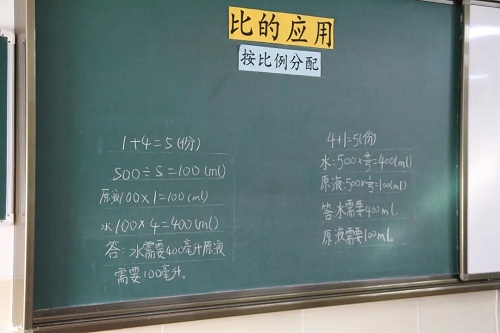 比的应用
按比例分配
1+4=5(份)
500÷5=100(ml)
原液100×1=100(ml)
水100×4=400(ml)
答:水需要400毫升原液
需要100毫升.
4+1=5(份)
水:500×4/5=400(ml)
原液:500×1/5=100(ml)
答:水需要400ml.
原液需要100ml。